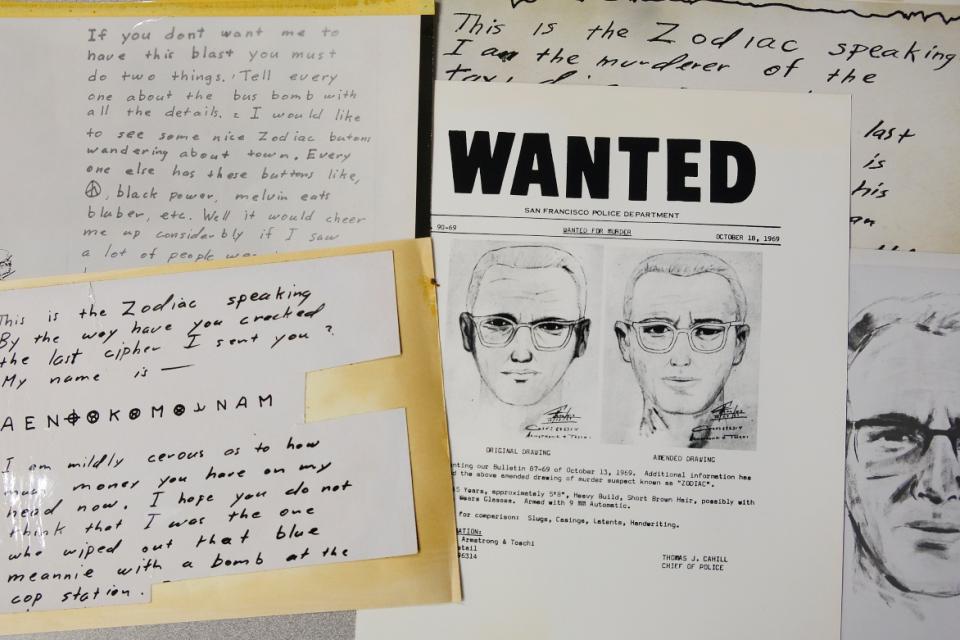 If you dont want me to
have this blast you must
do two things. Tell every
one about the bus bomb with
all the details. I would like
to see some nice Zodiac butons
wandering about town. Every
one else has these buttons like,
☮, black power, melvin eats
bluber, etc. Well it would cheer
me up considerbly if I saw
a lot of people
This is the Zodiac speaking
By the way have you cracked
the last cipher I sent you?
My name is —
A E N ⌖ ⊗ K ⊗ M ⊗ ⅃ N A M
I am mildly cerous as to how
much money you have on my
head now. I hope you do not
think that I was the one
who wiped out that blue
meannie with a bomb at the
cop station.
This is the Zodiac speaking
I am the murderer of the
last
is
his
WANTED
SAN FRANCISCO POLICE DEPARTMENT
90-69 WANTED FOR MURDER OCTOBER 18, 1969
ORIGINAL DRAWING AMENDED DRAWING
our Bulletin 87-69 of October 13, 1969. Additional information has
the above amended drawing of murder suspect known as "ZODIAC".
Years, approximately 5'8", Heavy Build, Short Brown Hair, possibly with
Wears Glasses. Armed with 9 MM Automatic.
for comparison: Slugs, Casings, Latents, Handwriting.
Armstrong & Toschi
THOMAS J. CAHILL
CHIEF OF POLICE